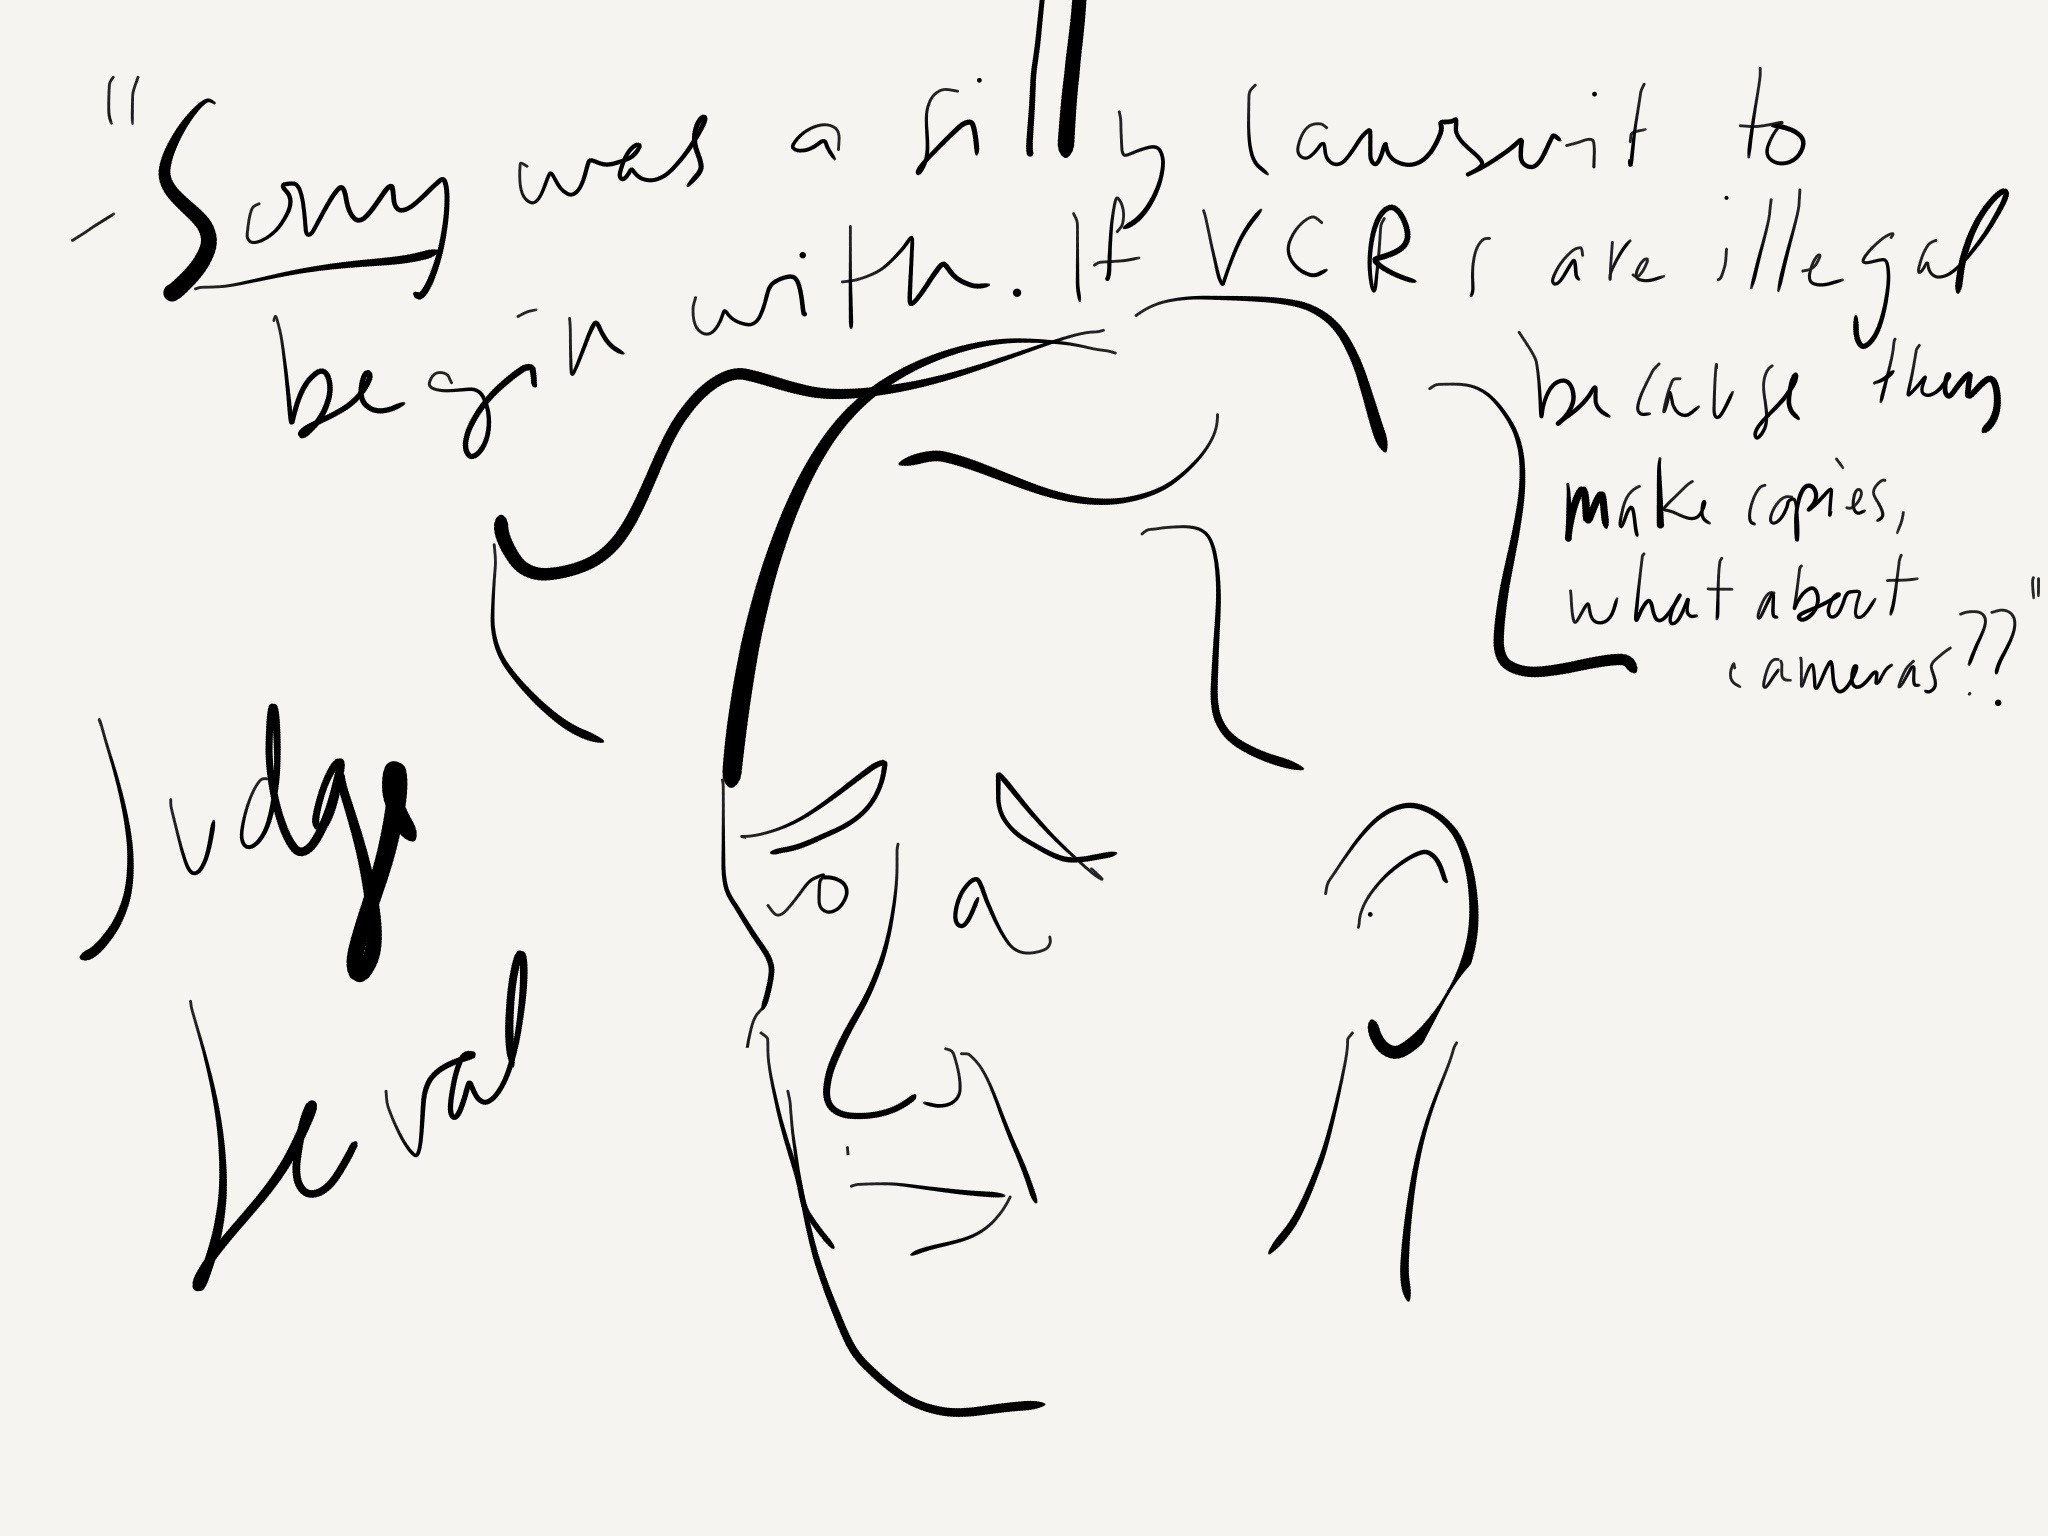 "Sony was a silly lawsuit to
begin with. If VCRs are illegal
because they
make copies,
what about
cameras??"
Judge
Leval